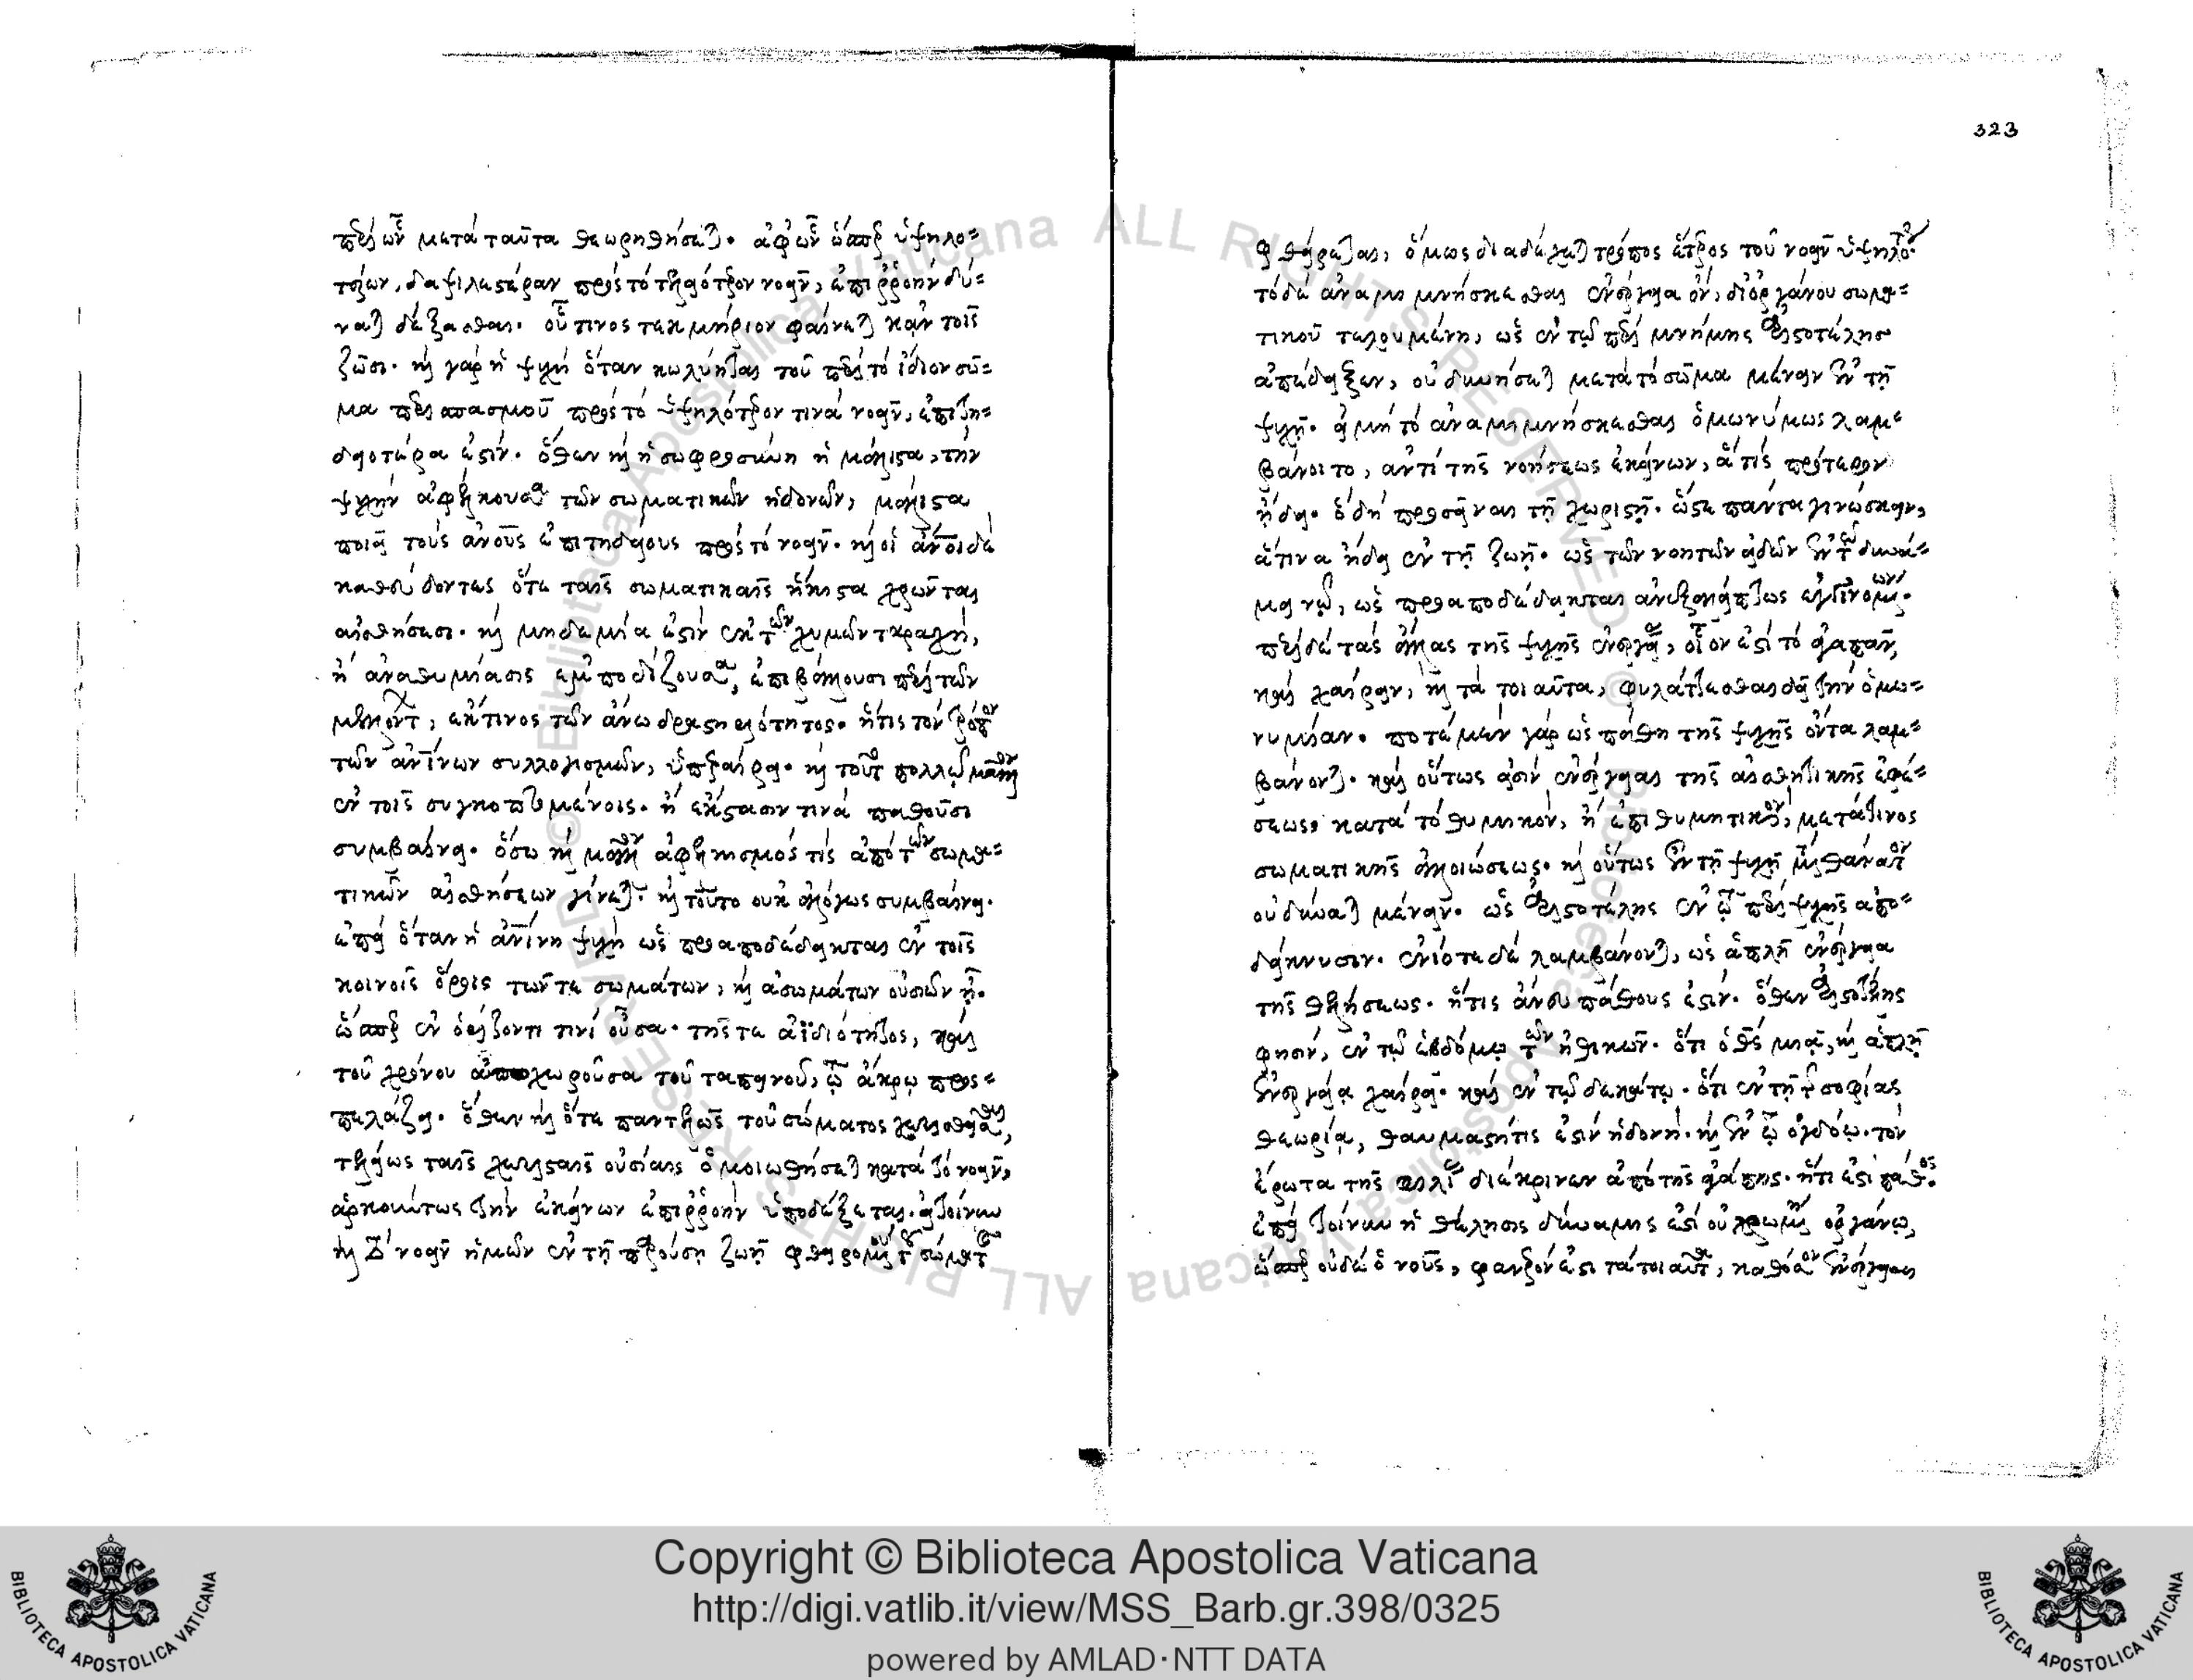 περὶ ὧν μετὰ ταῦτα θεωρηθήσεται. ἀφ' ὧν ὥσπερ ὑψηλο=
τέρων, δαψιλεστέραν πρὸς τὸ τελειότερον νοεῖν, ἐπιρροὴν δύ=
ναται δέξασθαι. οὗ τινος τεκμήριον φαίνεται κἀν τοῖς
ζῶσι. καὶ γὰρ ἡ ψυχὴ ὅταν κωλύηται τοῦ περὶ τὸ ἴδιον σῶ=
μα περισπασμοῦ πρὸς τὸ ὑψηλότερον τινὰ νοεῖν, ἐπιτη=
δειοτέρα ἐστίν. ὅθεν καὶ ἡ σωφροσύνη ἡ μάλιστα, τὴν
ψυχὴν ἀφέλκουσα τῶν σωματικῶν ἡδονῶν, μάλιστα
ποιεῖ τοὺς ἀνους ἐπιτηδείους πρὸς τὸ νοεῖν. καὶ οἱ ἄνοι δὲ
καθεύδοντες ὅτε ταῖς σωματικαῖς ἥκιστα χρῶνται
αἰσθήσεσι. καὶ μηδεμία ἐστὶν ἐκ τῶν χυμῶν ταραχὴ,
ἢ ἀναθυμίασις ἐμποδίζουσα, ἐπιβάλλουσι περὶ τῶν
μελλόντων, ἔκ τινος τῶν ἄνω δραστηριότητος. ἥτις τὸν τρόπον
τῶν ἀνίνων συλλογισμῶν, ὑπεραίρει. καὶ τοῦτο πολλῷ μᾶλλον
ἐν τοῖς συγκοπτομένοις. ἢ ἔκστασιν τινὰ παθοῦσι
συμβαίνει. ὅσω καὶ μᾶλλον ἀφελκυσμός τις ἀπὸ τῶν σωμα=
τικῶν αἰσθήσεων γίνεται. καὶ τοῦτο οὐκ ἀλόγως συμβαίνει.
ἐπεὶ ὅταν ἡ ἀνίνη ψυχὴ ὡς προαποδέδεικται ἐν τοῖς
κοινοῖς ὅροις τῶν τε σωμάτων, καὶ ἀσωμάτων οὐσιῶν ᾖ.
ὥσπερ ἐν ὁρίζοντι τινὶ οὖσα. τῆς τε ἀϊδιότητος, καὶ
τοῦ χρόνου ἀποχωροῦσα τοῦ ταπεινοῦ, τῷ ἄκρῳ προσ=
πελάζει. ὅθεν καὶ ὅτε παντελῶς τοῦ σώματος χωρισθεῖσα,
τελείως ταῖς χωρισταῖς οὐσίαις ὁμοιωθήσεται κατὰ τὸ νοεῖν,
ἀρκούντως τὴν ἐκείνων ἐπιρροὴν ὑποδέξεται. εἰ τοίνυν
καὶ τὸ νοεῖν ἡμῶν ἐν τῇ παρούσῃ ζωῇ φθειρομένου τοῦ σώματος
φθείρεται, ὅμως διαδέχεται τρόπος ἕτερος τοῦ νοεῖν ὑψηλότερος.
τὸ δὲ ἀναμιμνήσκεσθαι ἐνέργεια ὂν, δι' ὀργάνου σωμα=
τικοῦ τελουμένη, ὡς ἐν τῷ περὶ μνήμης Ἀριστοτέλης
ἀπέδειξεν, οὐ δυνήσεται μετὰ τὸ σῶμα μένειν ἐν τῇ
ψυχῇ. εἰ μὴ τὸ ἀναμιμνήσκεσθαι ὁμωνύμως λαμ=
βάνοιτο, ἀντὶ τῆς νοήσεως ἐκείνων, ἅ τις πρότερον
ᾔδει. ὃ δὴ προσεῖναι τῇ χωριστῇ. ὥστε πάντα γινώσκειν,
ἅτινα ᾔδει ἐν τῇ ζωῇ. ὡς τῶν νοητῶν εἰδῶν ἐν τῷ δυνά=
μει νῷ, ὡς προαποδέδεικται ἀνεξαλείπτως εἰσδινομένων.
περὶ δὲ τὰς ἄλλας τῆς ψυχῆς ἐνεργείας, οἷον ἐστὶ τὸ ἀγαπᾶν,
καὶ χαίρειν, καὶ τὰ τοιαῦτα, φυλάττεσθαι δεῖ τὴν ὁμω=
νυμίαν. ποτὲ μὲν γὰρ ὡς πάθη τῆς ψυχῆς ὄντα λαμ=
βάνονται. καὶ οὕτως εἰσὶν ἐνέργειαι τῆς αἰσθητικῆς ἐφέ=
σεως, κατὰ τὸ θυμικὸν, ἢ ἐπιθυμητικὸν, μετά τινος
σωματικῆς ἀλλοιώσεως. καὶ οὕτως ἐν τῇ ψυχῇ μετὰ θάνατον
οὐ δύναται μένειν. ὡς Ἀριστοτέλης ἐν τῷ περὶ ψυχῆς ἀπο=
δείκνυσιν. ἐνίοτε δὲ λαμβάνονται, ὡς ἁπλῆ ἐνέργεια
τῆς θελήσεως. ἥτις ἄνευ πάθους ἐστίν. ὅθεν Ἀριστοτέλης
φησὶν, ἐν τῷ ἑβδόμῳ τῶν ἠθικῶν. ὅτι ὁ θς μιᾷ, καὶ ἁπλῇ
ἐνεργείᾳ χαίρει. καὶ ἐν τῷ δεκάτῳ. ὅτι ἐν τῇ τῆς σοφίας
θεωρίᾳ, θαυμαστή τις ἐστὶν ἡδονή. καὶ ἐν τῷ ὀγδόῳ. τὸν
ἔρωτα τῆς φιλίας διέκρινεν ἀπὸ τῆς ἀγάπης. ἥτι ἐστὶ πάθος.
ἐπεὶ τοίνυν ἡ θέλησις δύναμις ἐστὶ οὐ χρωμένη ὀργάνῳ,
ὥσπερ οὐδὲ ὁ νοῦς, φανερόν ἐστι τὰ τοιαῦτα, καθόσον ἐνέργειαι
323
Copyright © Biblioteca Apostolica Vaticana
http://digi.vatlib.it/view/MSS_Barb.gr.398/0325
powered by AMLAD·NTT DATA
BIBLIOTECA APOSTOLICA VATICANA
BIBLIOTECA APOSTOLICA VATICANA